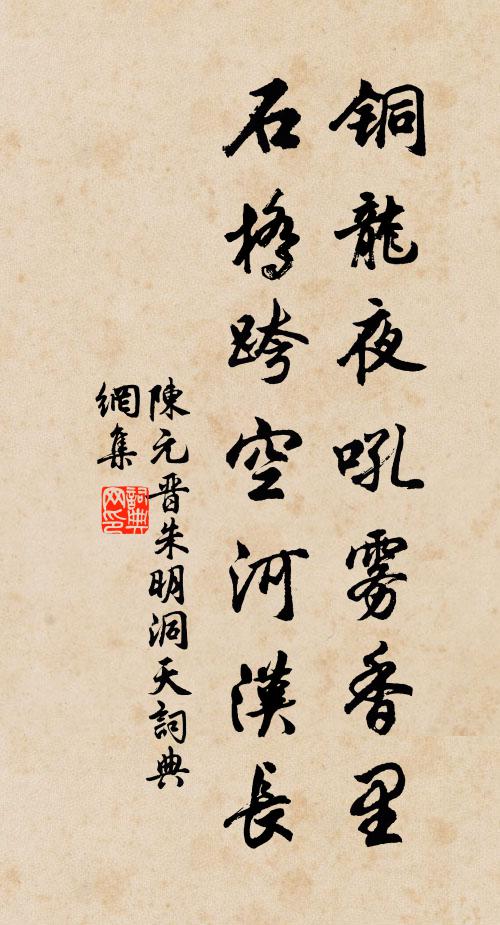 铜龍夜吼雾香里
石橋跨空河漢長
陳元晋朱明洞天詞典
網集
詞典
网印